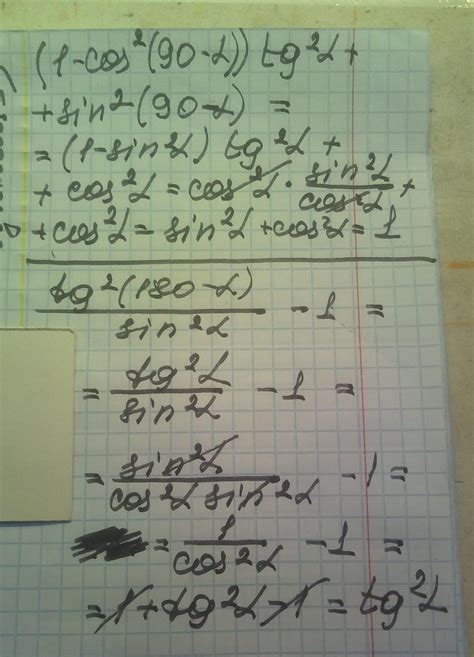 (1-cos²(90-α)) tg²α +
+sin²(90-α) =
=(1-sin²α) tg²α +
+ cos²α = cos²α · sin²α/cos²α +
+cos²α = sin²α +cos²α = 1
tg²(180-α)/sin²α - 1 =
= tg²α/sin²α - 1 =
= sin²α/cos²α sin²α - 1 =
= 1/cos²α - 1 =
= 1 + tg²α - 1 = tg²α